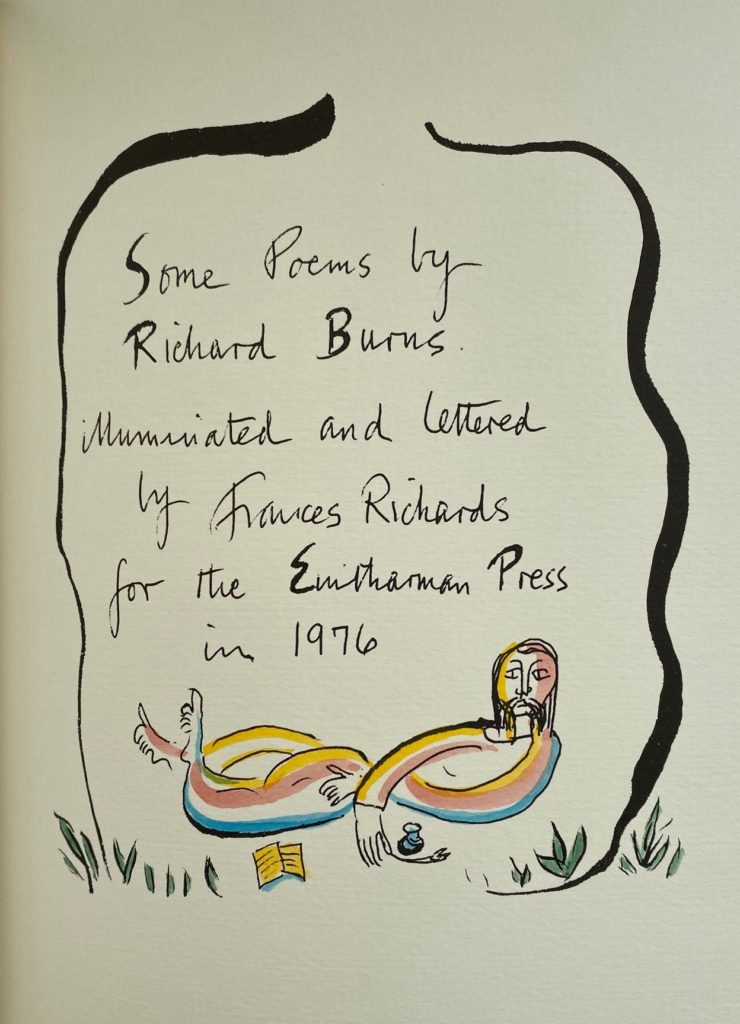 Some Poems by
Richard Burns.
illuminated and lettered
by Frances Richards
for the Enitharman Press
in 1976